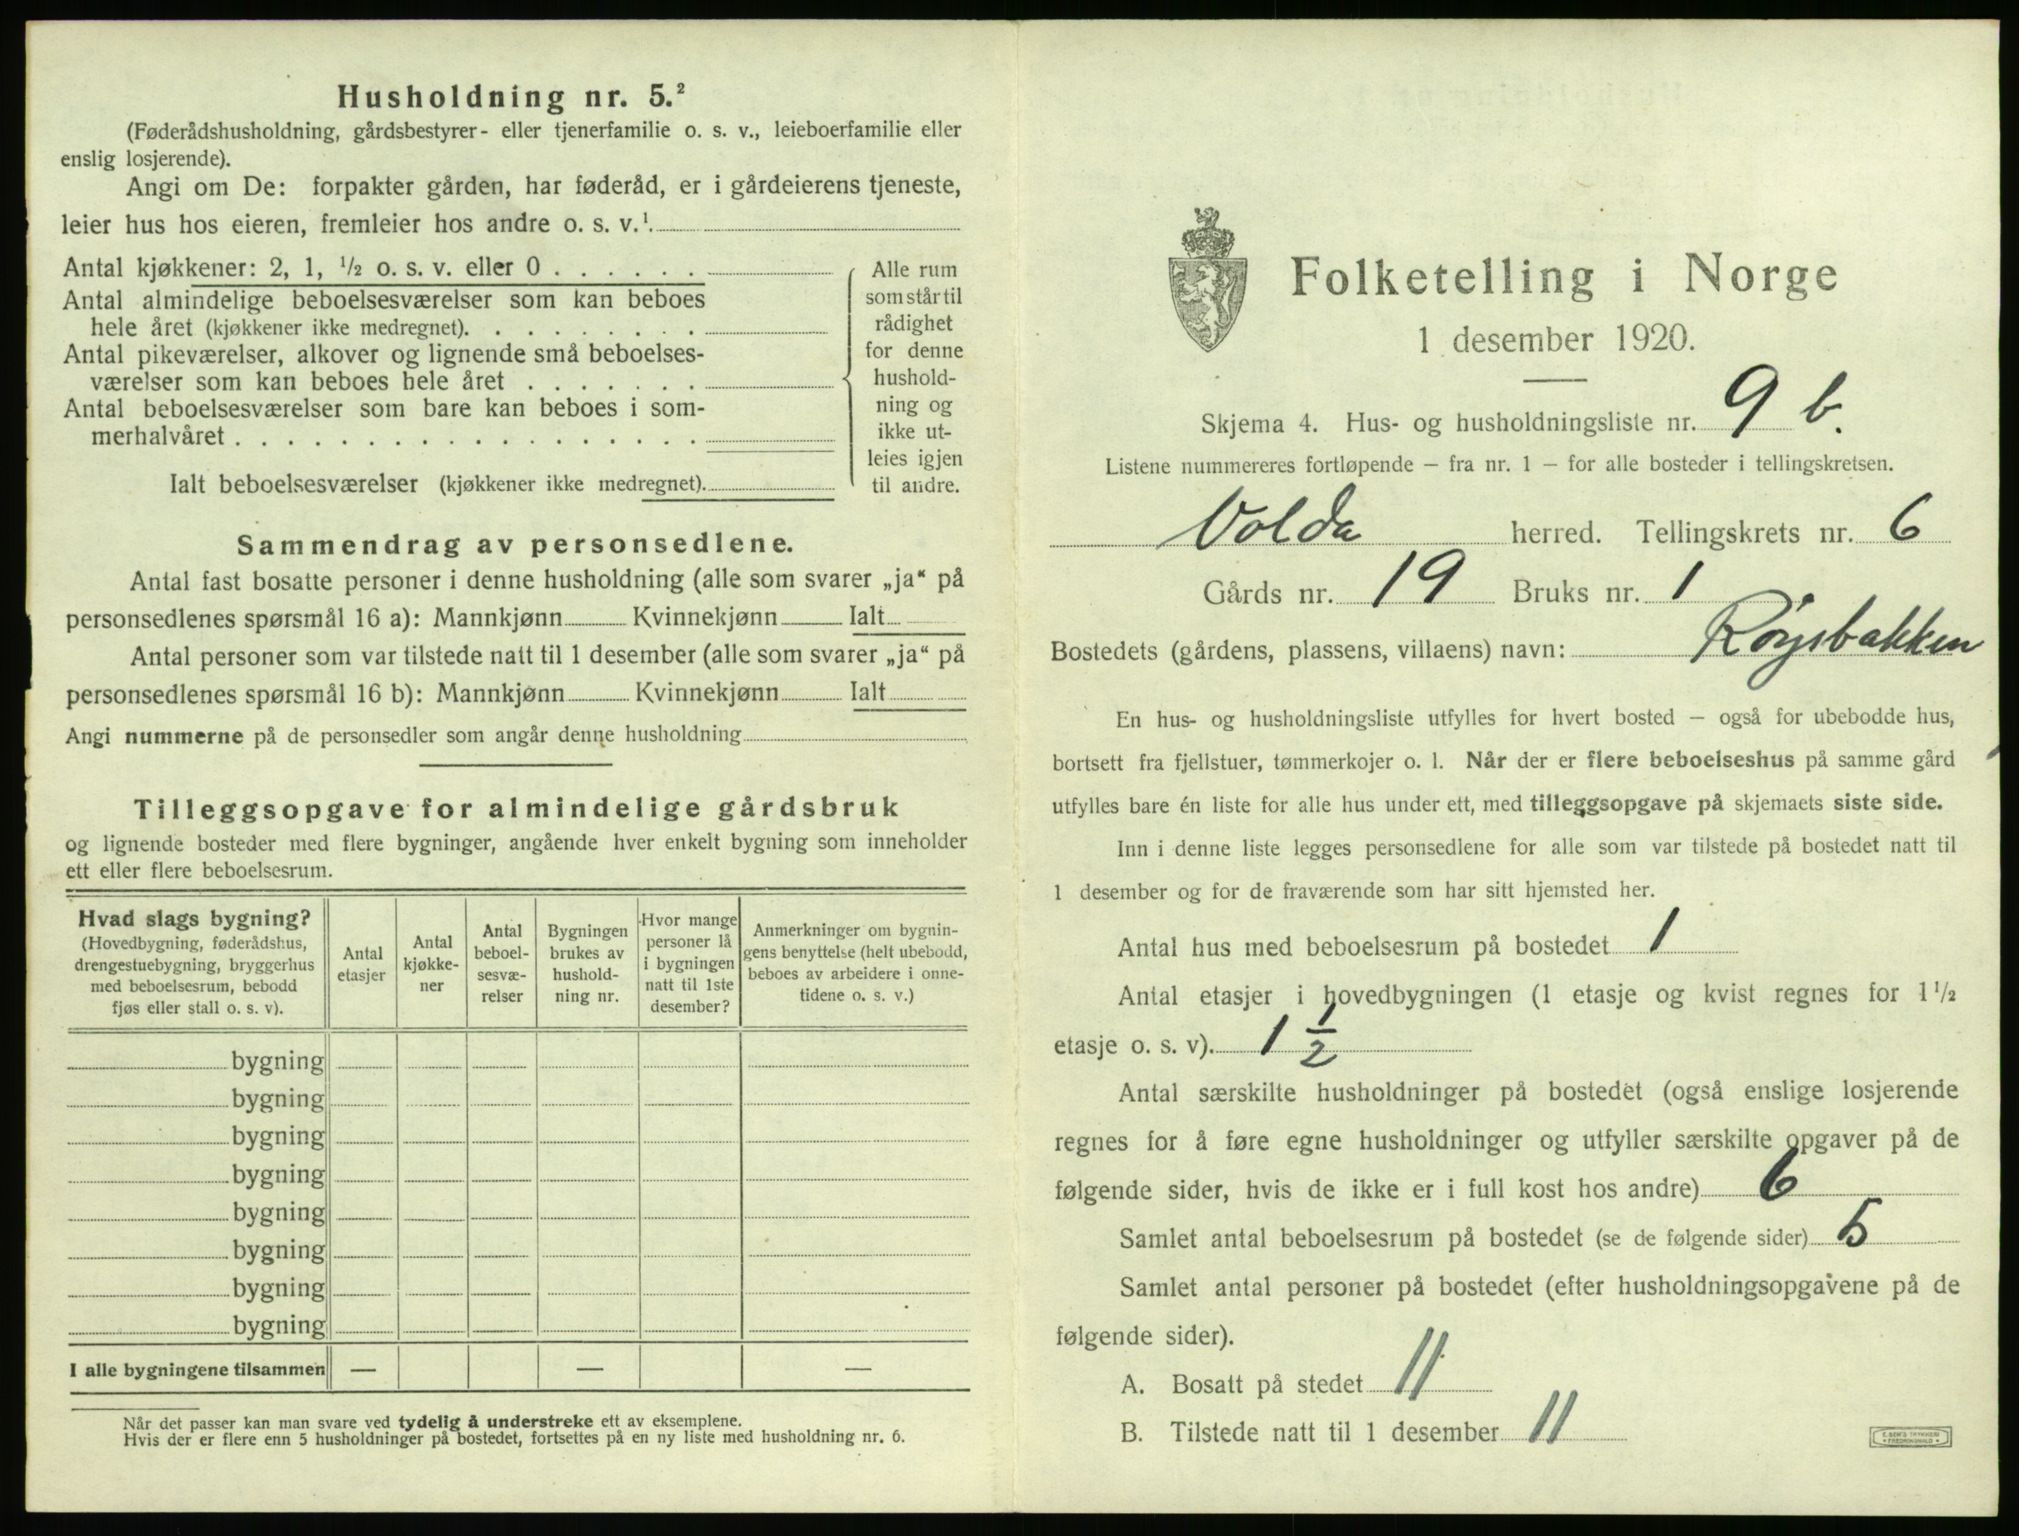 Husholdning nr. 5.²
(Føderådshusholdning, gårdsbestyrer- eller tjenerfamilie o. s. v., leieboerfamilie eller
enslig losjerende).
Angi om De: forpakter gården, har føderåd, er i gårdeierens tjeneste,
leier hus hos eieren, fremleier hos andre o. s. v.¹
Antal kjøkkener: 2, 1, ½ o. s. v. eller 0 . . . . . .
Antal almindelige beboelsesværelser som kan beboes
hele året (kjøkkener ikke medregnet). . . . . . . . .
Antal pikeværelser, alkover og lignende små beboelses-
værelser som kan beboes hele året . . . . . . .
Antal beboelsesværelser som bare kan beboes i som-
merhalvåret . . . . . . . . . . . . . . . . . .
Ialt beboelsesværelser (kjøkkener ikke medregnet).
Alle rum
som står til
rådighet
for denne
hushold-
ning og
ikke ut-
leies igjen
til andre.
Sammendrag av personsedlene.
Antal fast bosatte personer i denne husholdning (alle som svarer „ja“ på
personsedlenes spørsmål 16 a): Mannkjønn Kvinnekjønn Ialt
Antal personer som var tilstede natt til 1 desember (alle som svarer „ja“ på
personsedlenes spørsmål 16 b): Mannkjønn Kvinnekjønn Ialt
Angi nummerne på de personsedler som angår denne husholdning
Tilleggsopgave for almindelige gårdsbruk
og lignende bosteder med flere bygninger, angående hver enkelt bygning som inneholder
ett eller flere beboelsesrum.
Hvad slags bygning?
(Hovedbygning, føderådshus,
drengestuebygning, bryggerhus
med beboelsesrum, bebodd
fjøs eller stall o. s. v).
Antal
etasjer
Antal
kjøkke-
ner
Antal
beboel-
sesvæ-
relser
Bygningen
brukes av
hushold-
ning nr.
Hvor mange
personer lå
i bygningen
natt til 1ste
desember?
Anmerkninger om bygnin-
gens benyttelse (helt ubebodd,
beboes av arbeidere i onne-
tidene o. s. v.)
bygning
bygning
bygning
bygning
bygning
bygning
bygning
bygning
I alle bygningene tilsammen — — —
Når det passer kan man svare ved tydelig å understreke ett av eksemplene.
Hvis der er flere enn 5 husholdninger på bostedet, fortsettes på en ny liste med husholdning nr. 6.
Folketelling i Norge
1 desember 1920.
Skjema 4. Hus- og husholdningsliste nr. 9 b.
Listene nummereres fortløpende – fra nr. 1 – for alle bosteder i tellingskretsen.
Volda herred. Tellingskrets nr. 6
Gårds nr. 19 Bruks nr. 1
Bostedets (gårdens, plassens, villaens) navn: Röysbakken
En hus- og husholdningsliste utfylles for hvert bosted – også for ubebodde hus,
bortsett fra fjellstuer, tømmerkojer o. l. Når der er flere beboelseshus på samme gård
utfylles bare én liste for alle hus under ett, med tilleggsopgave på skjemaets siste side.
Inn i denne liste legges personsedlene for alle som var tilstede på bostedet natt til
1 desember og for de fraværende som har sitt hjemsted her.
Antal hus med beboelsesrum på bostedet 1
Antal etasjer i hovedbygningen (1 etasje og kvist regnes for 1½
etasje o. s. v). 1 1/2
Antal særskilte husholdninger på bostedet (også enslige losjerende
regnes for å føre egne husholdninger og utfyller særskilte opgaver på de
følgende sider, hvis de ikke er i full kost hos andre) 6
Samlet antal beboelsesrum på bostedet (se de følgende sider) 5
Samlet antal personer på bostedet (efter husholdningsopgavene på de
følgende sider).
A. Bosatt på stedet 11
B. Tilstede natt til 1 desember 11